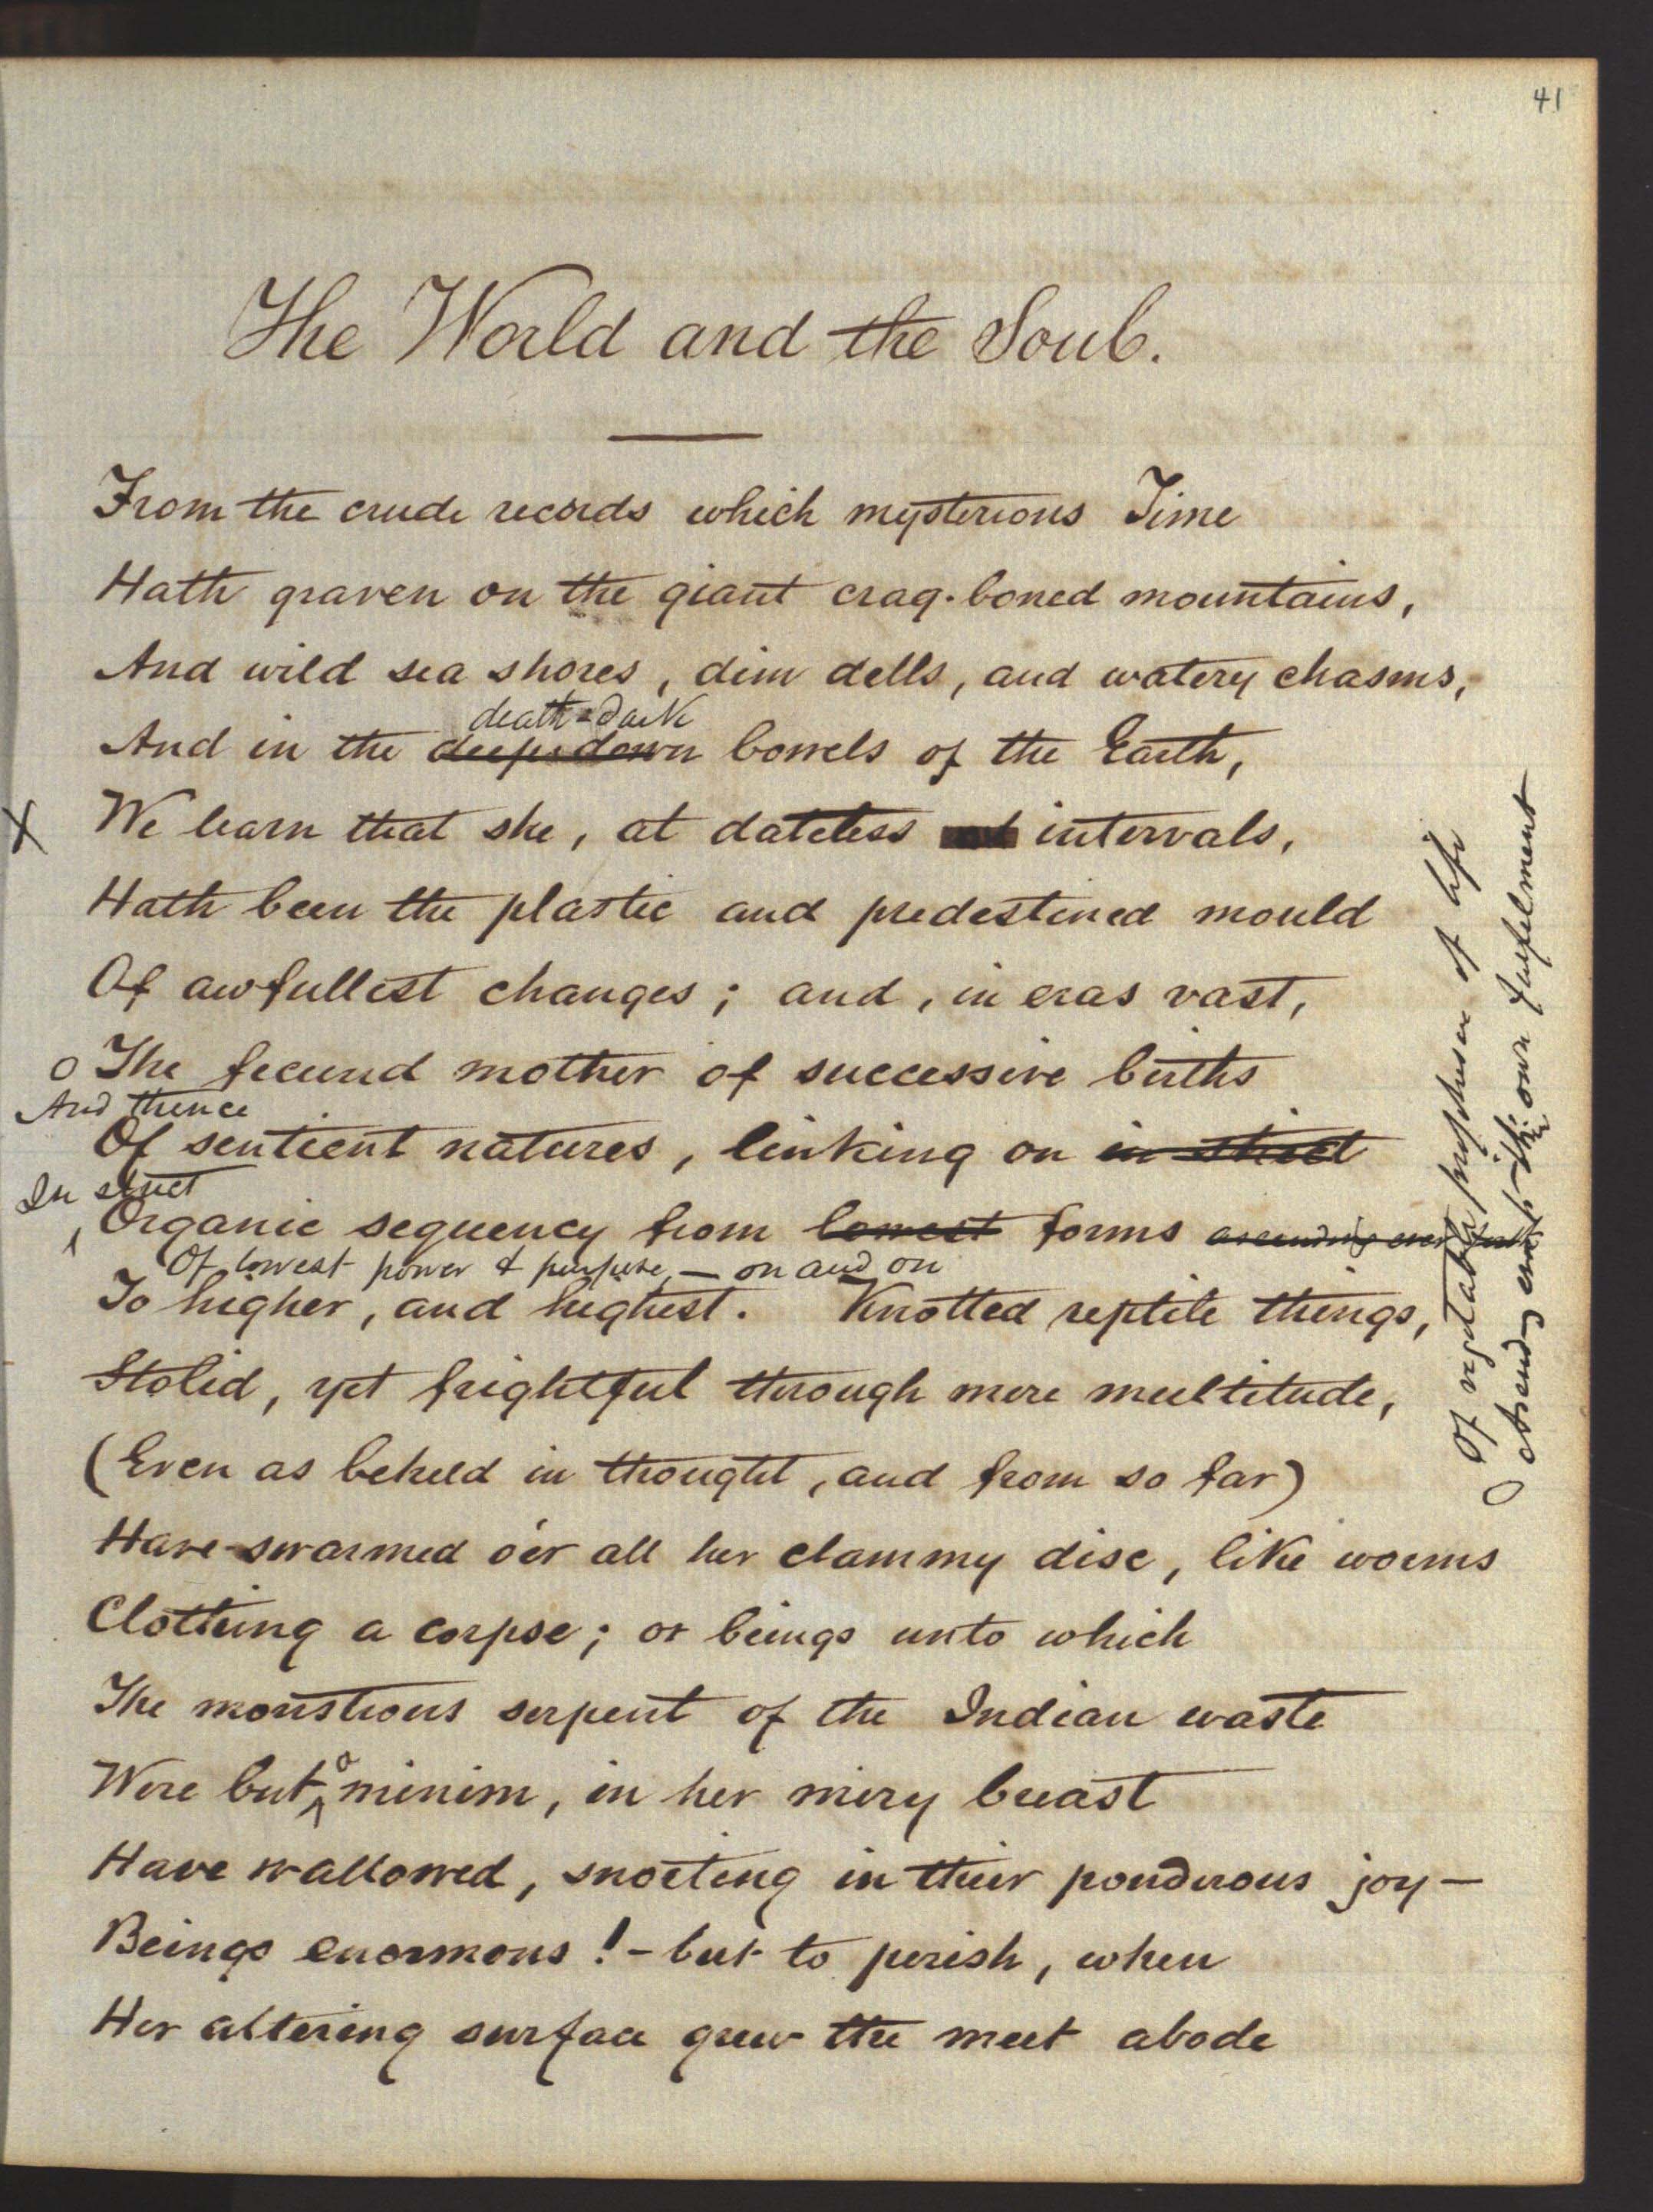 41
The World and the Soul.
From the crude records which mysterious Time
Hath graven on the giant crag-boned mountains,
And wild sea shores, dim dells, and watery chasms,
death-dark
And in the deeps down bowels of the Earth,
X We learn that she, at dateless intervals,
Hath been the plastic and predestined mould
Of awfullest changes; and, in eras vast,
O The fecund mother of successive births
And thence
Of sentient natures, linking on in strict
In strict
Organic sequency from lowest forms ascending ever
Of lowest power & purpose, — on and on
To higher, and highest. Knotted reptile things,
Stolid, yet frightful through mere multitude,
(Even as beheld in thought, and from so far)
Have swarmed o'er all her clammy disc, like worms
Clothing a corpse; or beings unto which
The monstrous serpent of the Indian waste
a
Were but minim, in her miry breast
Have wallowed, snorting in their ponderous joy—
Beings enormous! – but to perish, when
Her altering surface grew the meet abode
O Of vegetable of life
own fulfilment